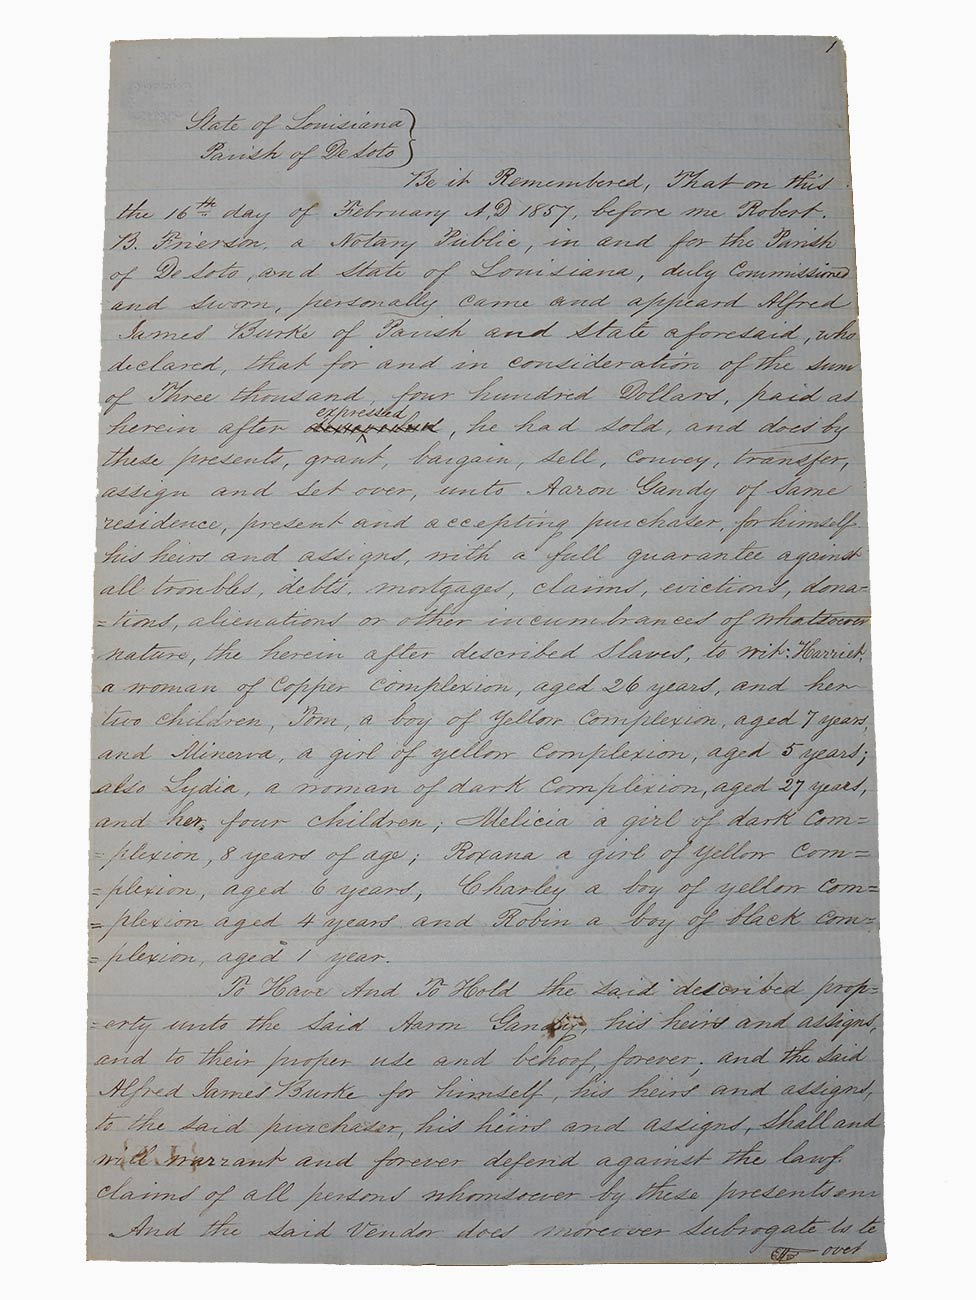 1
State of Louisiana
Parish of DeSoto
Be it Remembered, That on this
the 16th day of February A,D 1857, before me Robert.
B. Frierson, a Notary Public, in and for the Parish
of De Soto, and State of Louisiana, duly Commissioned
and sworn, personally came and appeard Alfred
James Burke of Parish and State aforesaid, who
declared, that for and in consideration of the sum
of Three thousand, four hundred Dollars, paid as
expressed
herein after , he had sold, and does by
these presents, grant, bargain, sell, convey, transfer,
assign and set over, unto Aaron Gandy of Same
residence, present and accepting purchaser, for himself
his heirs and assigns, with a full guarantee against
all troubles, debts, mortgages, claims, evictions, dona=
=tions, alienations or other incumbrances of whatsoever
nature, the herein after described Slaves, to wit: Harriet,
a woman of Copper Complexion, aged 26 years, and her
two children, Tom, a boy of Yellow Complexion, aged 7 years,
and Minerva, a girl of yellow Complexion, aged 5 years;
also Lydia, a woman of dark Complexion, aged 27 years,
and her, four children; Melicia a girl of dark Com=
=plexion, 8 years of age; Roxana a girl of Yellow Com=
=plexion, aged 6 years, Charley a boy of yellow Com=
=plexion aged 4 years and Robin a boy of black Com=
=plexion, aged 1 year.
To Have And To Hold the said described prop=
=erty unto the said Aaron Gandy, his heirs and assigns,
and to their proper use and behoof, forever; and the said
Alfred James Burke for himself, his heirs and assigns,
to the said purchaser, his heirs and assigns, shall and
will warrant and forever defend against the lawf
claims of all persons whomsoever by these presents
And the said Vendor does moreover subrogate
over